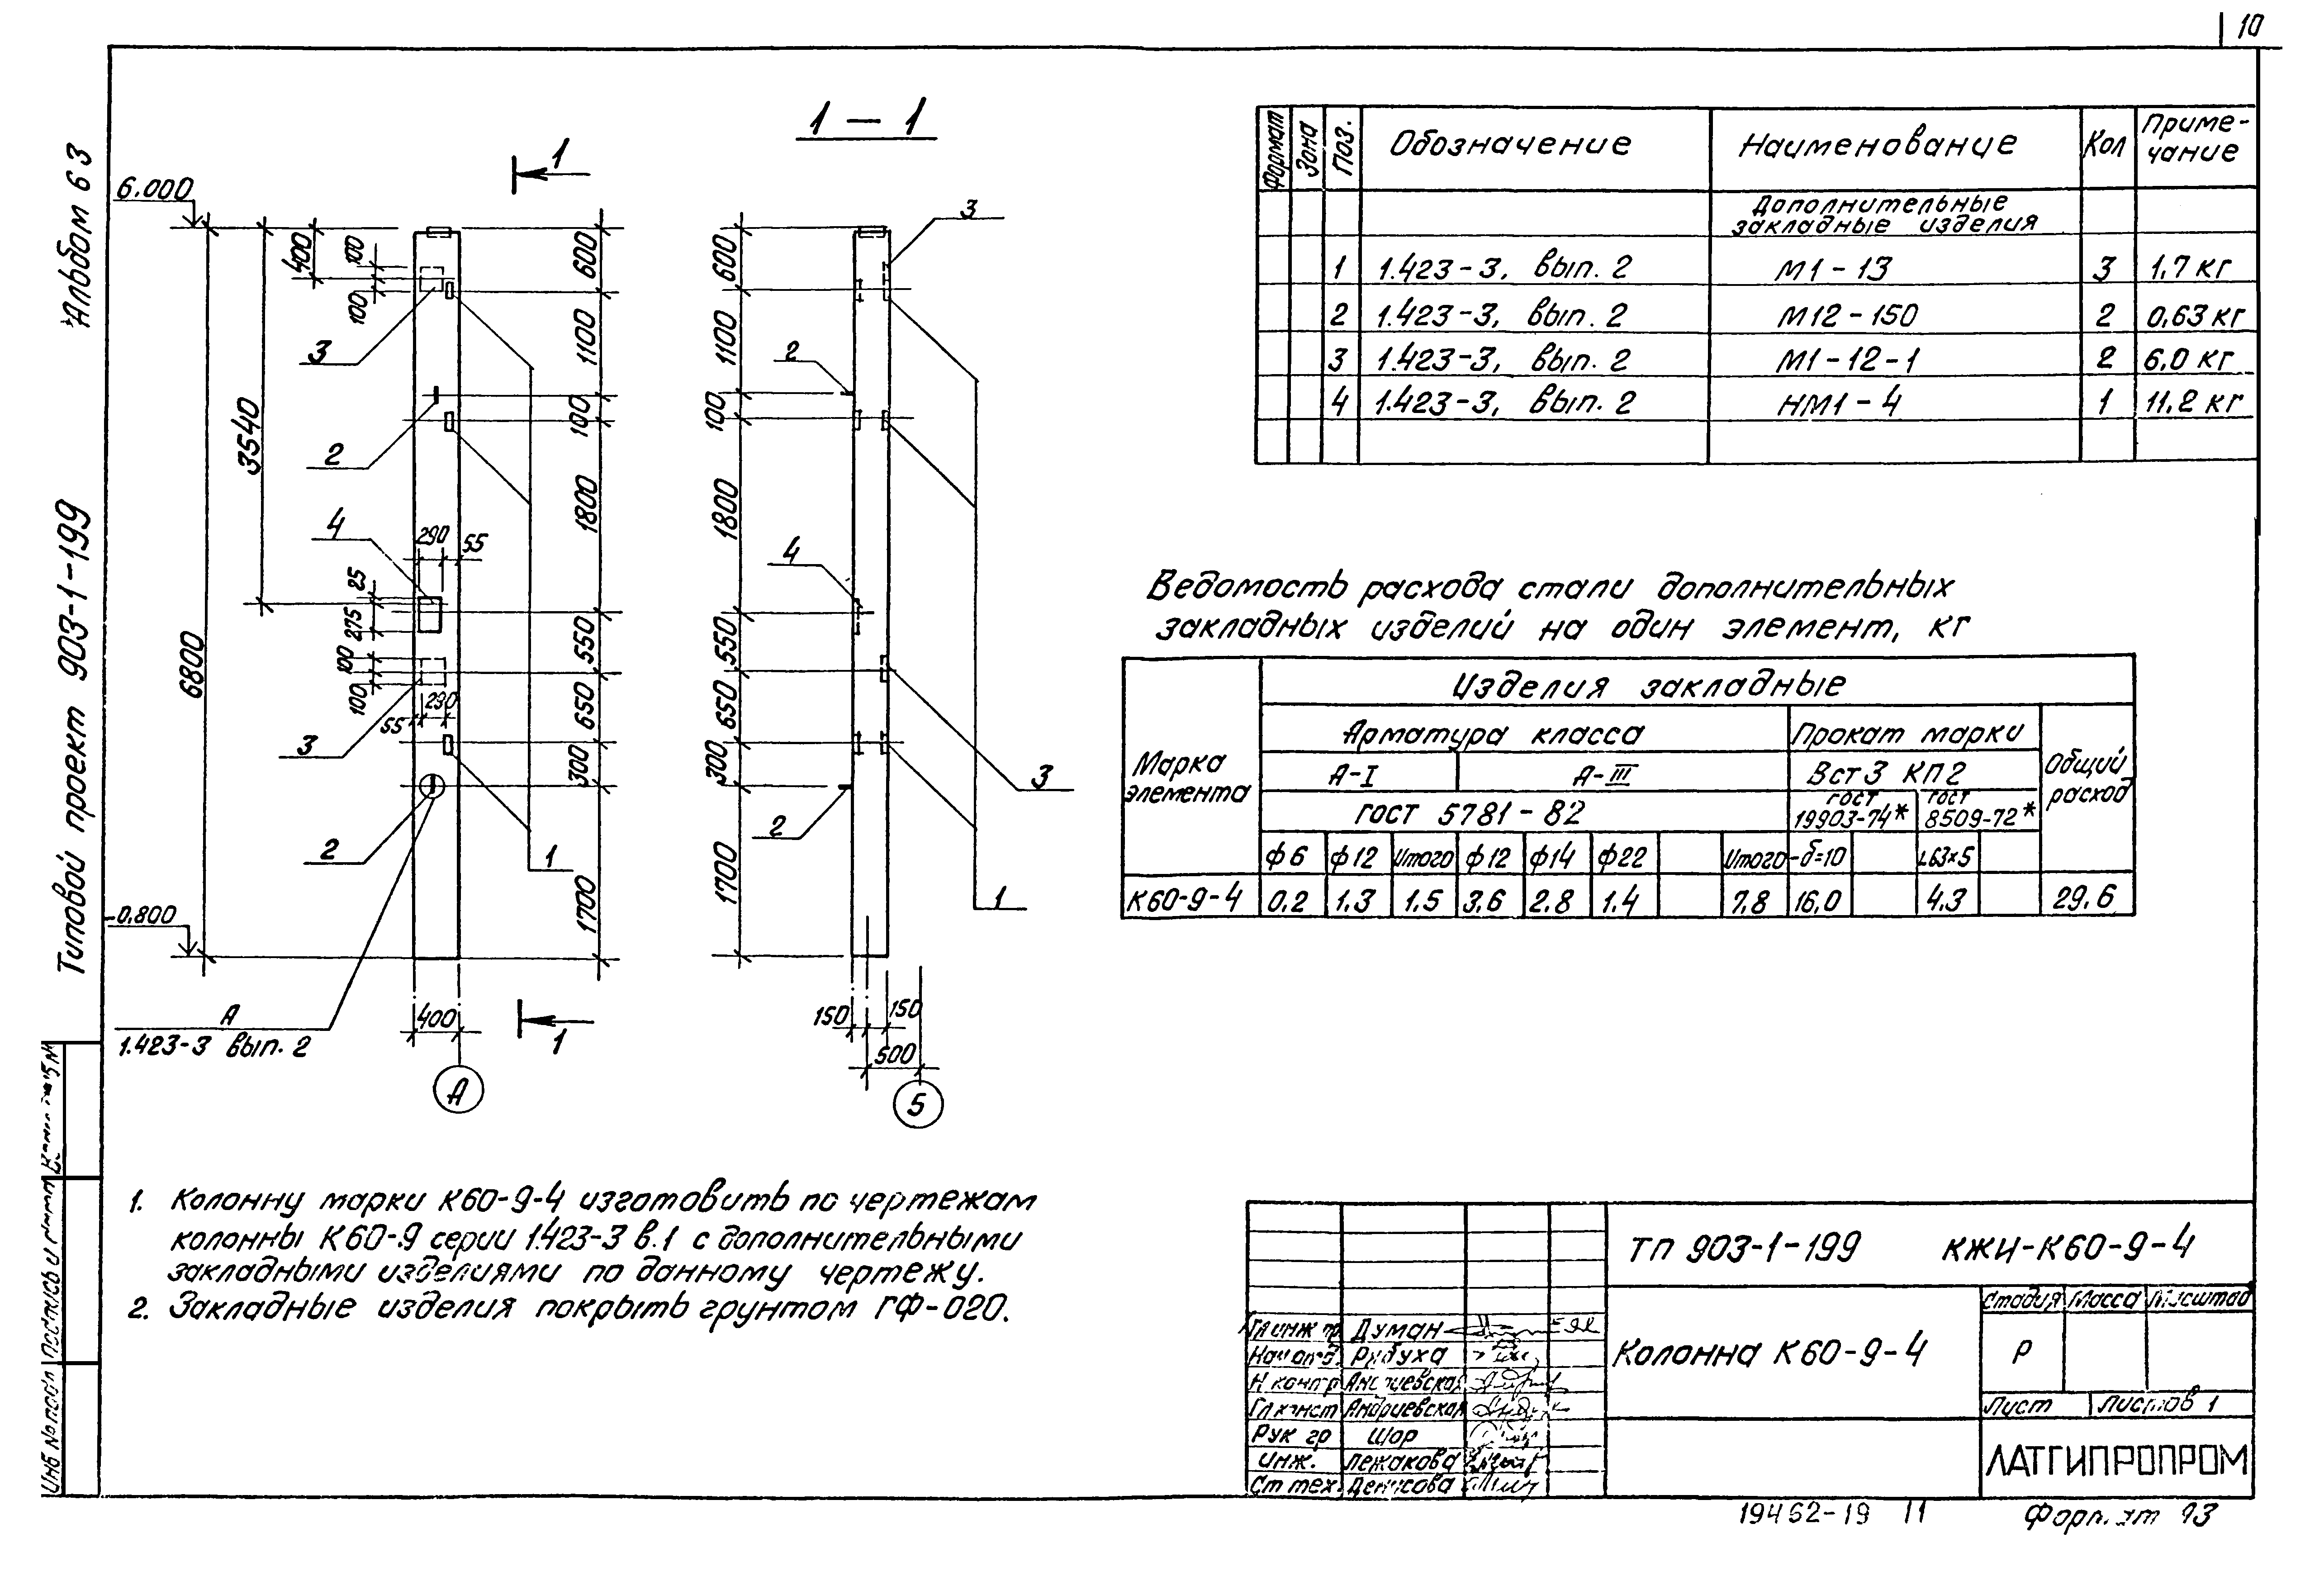 10
Альбом 63
Типовой проект 903-1-199
1 – 1
1
6.000
400
100
100
600
1100
100
1800
550
650
300
1700
3540
6800
3
2
4
290
55
25
275
100
100
290
55
3
2
1
-0.800
А
1.423-3 вып. 2
400
1
А
3
600
1100
100
1800
550
650
300
1700
2
4
3
2
1
150
150
500
5
Формат Зона Поз. Обозначение Наименование Кол Приме-
чание
Дополнительные
закладные изделия
1 1.423-3, вып. 2 М1-13 3 1,7 кг
2 1.423-3, вып. 2 М12-150 2 0,63 кг
3 1.423-3, вып. 2 М1-12-1 2 6,0 кг
4 1.423-3, вып. 2 НМ1-4 1 11,2 кг
Ведомость расхода стали дополнительных
закладных изделий на один элемент, кг
Марка
элемента
Изделия закладные
Арматура класса Прокат марки
Общий
расход
А-I А-III Вст3 КП2
ГОСТ 5781-82
ГОСТ
19903-74*
ГОСТ
8509-72*
ф6 ф12 Итого ф12 ф14 ф22 Итого -δ=10 L63×5
К60-9-4 0.2 1.3 1.5 3.6 2.8 1.4 7.8 16,0 4.3 29.6
1. Колонну марки К60-9-4 изготовить по чертежам
колонны К60-9 серии 1.423-3 в.1 с дополнительными
закладными изделиями по данному чертежу.
2. Закладные изделия покрыть грунтом ГФ-020.
ТП 903-1-199 КЖИ-К60-9-4
Колонна К60-9-4
Стадия Масса Масштаб
Р
Лист Листов 1
ЛАТГИПРОПРОМ
Гл инж пр Думан
Нач отд. Рыбуха
Н контр Андриевская
Гл конст Андриевская
Рук гр Шор
Инж. Лежакова
Ст тех. Денисова
Инв № подл
Подпись и
19462-19 11
Формат